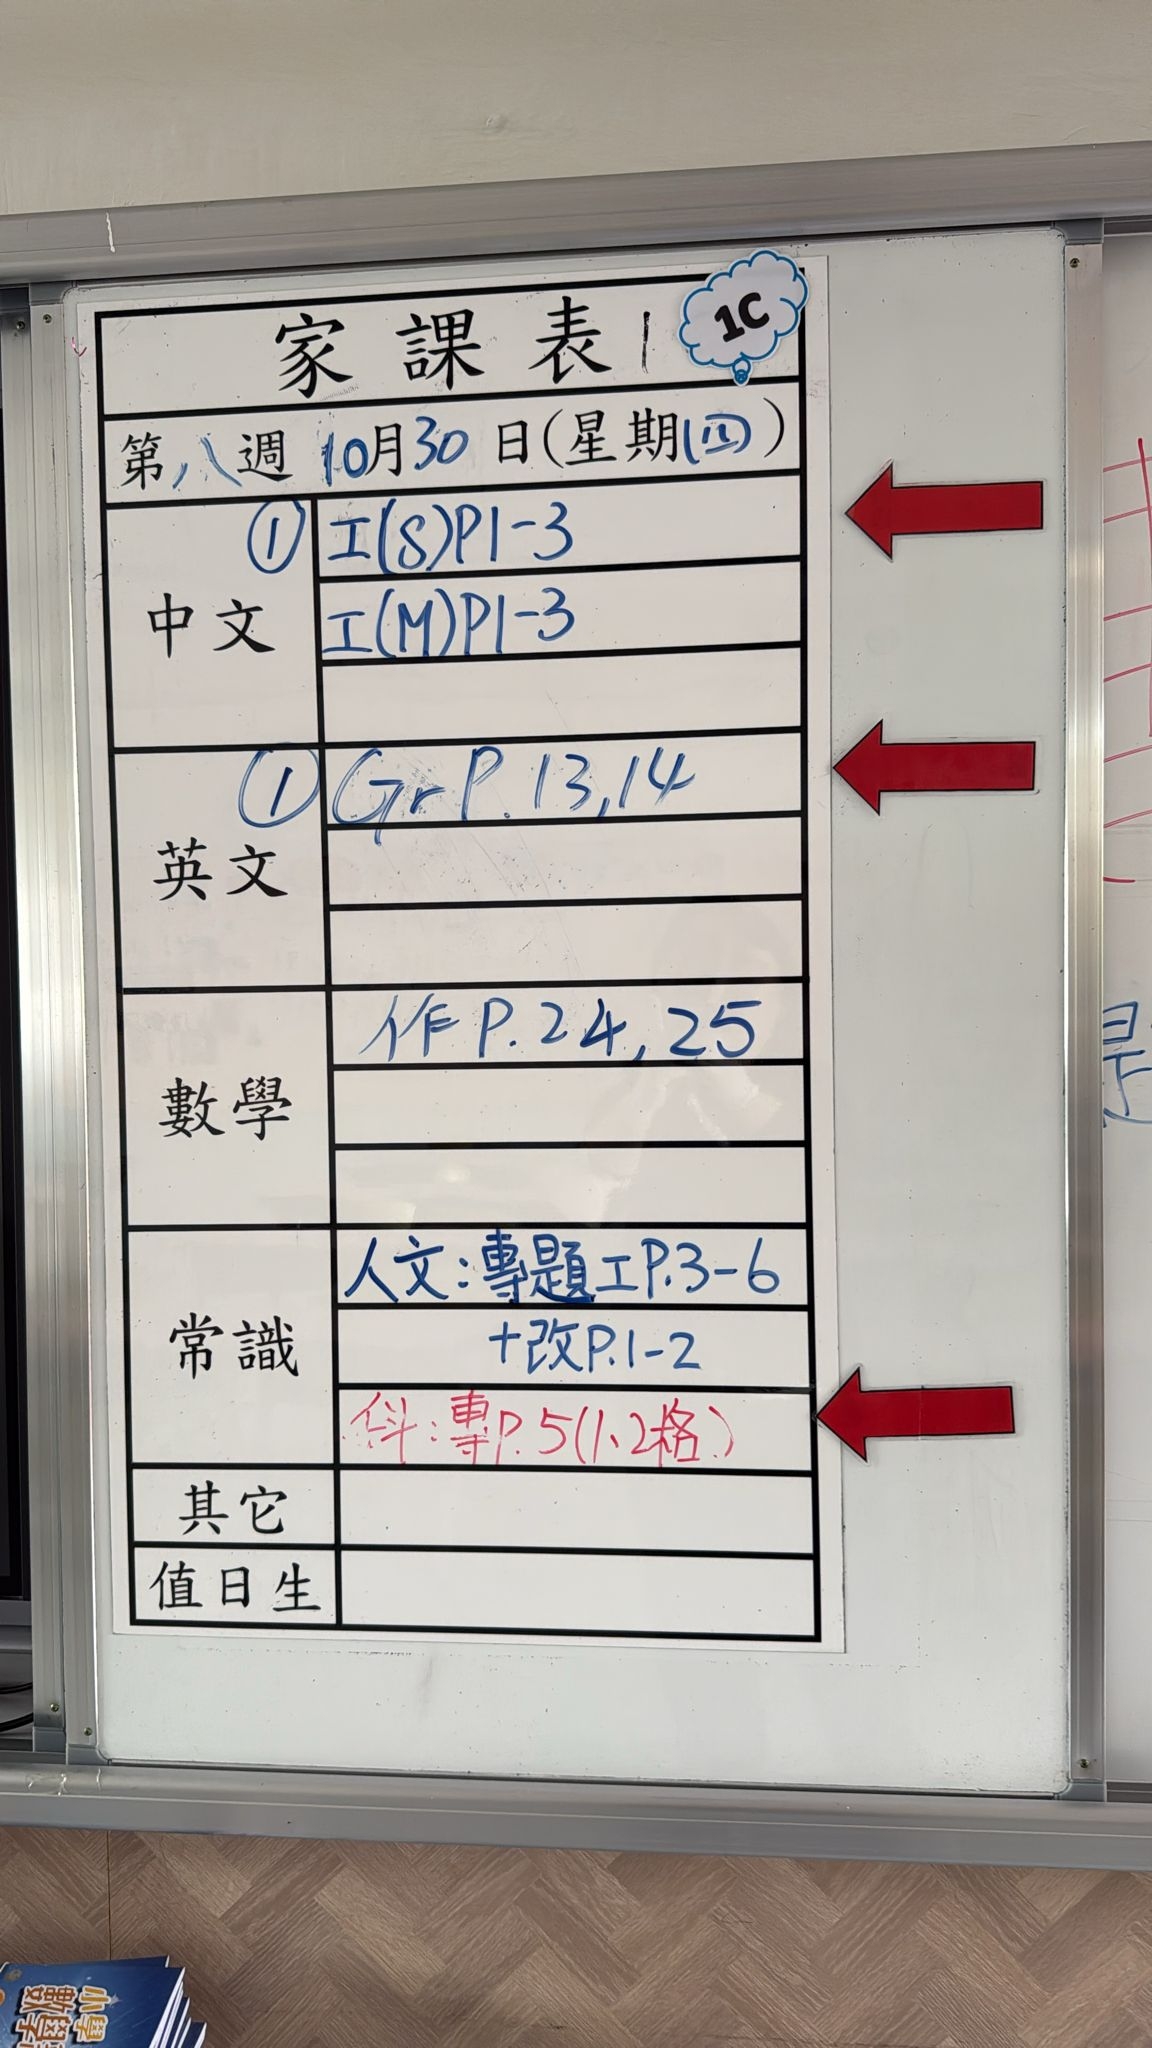 家課表
1C
第八週 10月30日(星期四)
中文
① 工(S)P1-3
工(M)P1-3
英文
① Gr P. 13,14
數學
作 P. 24, 25
常識
人文:專題工P.3-6
+改P.1-2
科:專P.5(1、2格)
其它
值日生
是
小學